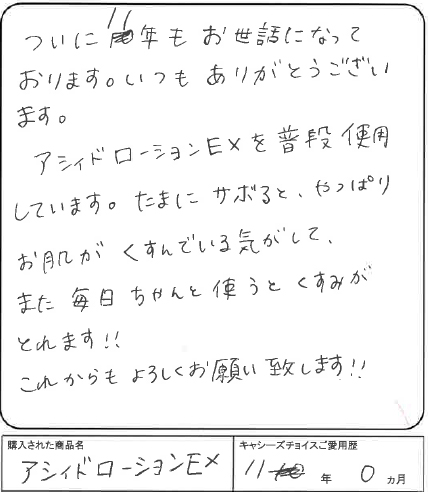 ついに11年もお世話になって
おります。いつもありがとうござい
ます。
アシィドローションEXを普段使用
しています。たまにサボると、やっぱり
お肌がくすんでいる気がして、
また毎日ちゃんと使うとくすみが
とれます!!
これからもよろしくお願い致します!!
購入された商品名
アシィドローションEX
キャシーズチョイスご愛用歴
11年0ヵ月